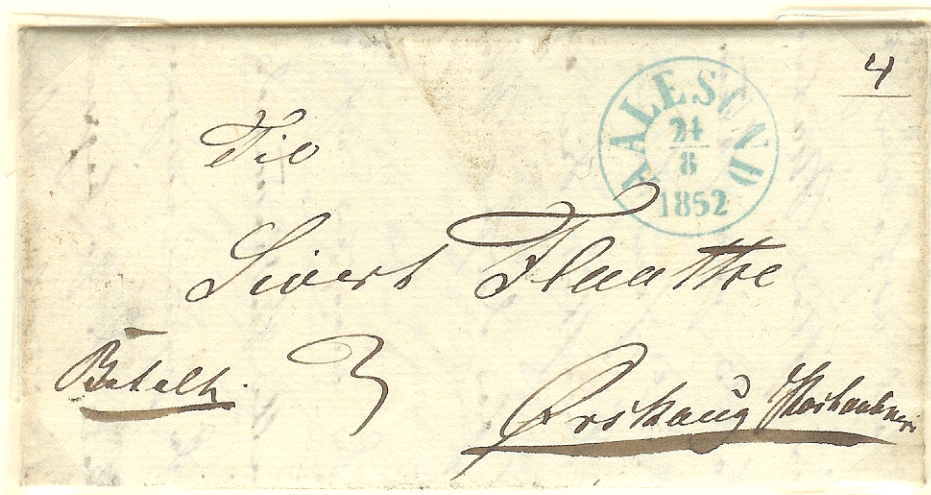 4
AALESUND
24
8
1852
Til
Sivert Flaathe
Betalt.
3
Ørskoug Postaabneri